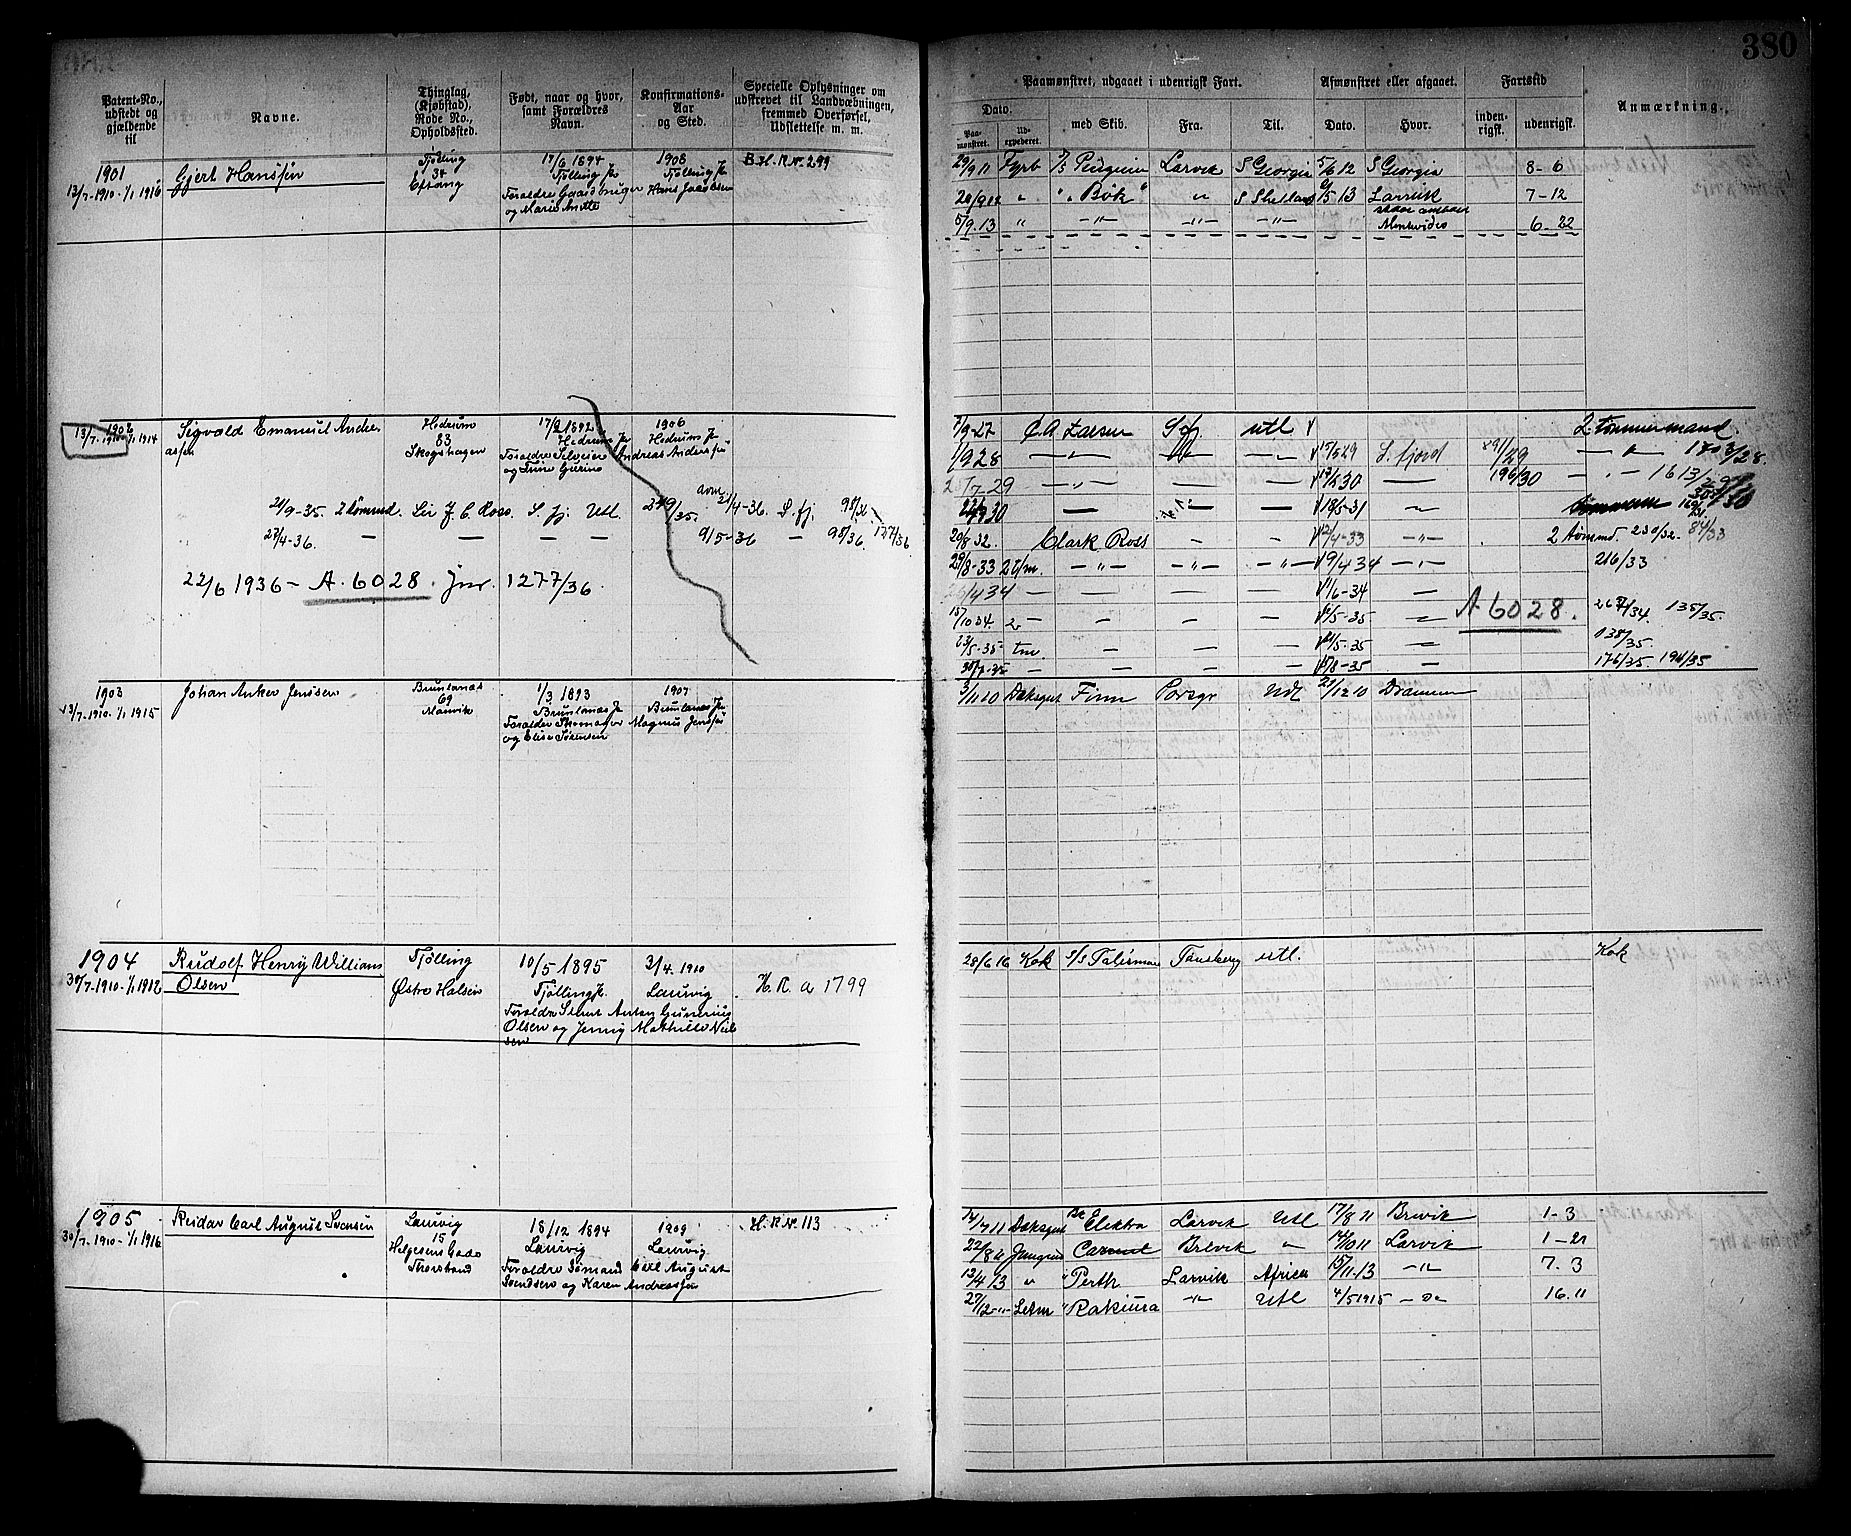 380
Patent-No., udstedt og gjældende til
Navne.
Thinglag, (Kjøbstad), Rode No., Opholdssted.
Født, naar og hvor, samt Forældres Navn.
Konfirmations-Aar og Sted.
Specielle Oplysninger om udstrevet til Landværbningen, fremmed Overførsel, Udslettelse m. m.
Paamønstret, udgaaet i udenrigsk Fart.
Afmønstret eller afgaaet.
Fartstid
Anmærkning.
Dato.
Paa-mønstret.
Ud-expederet.
med Skib.
Fra.
Til.
Dato.
Hvor.
inden-rigsk.
udenrigsk.
1901
13/7-1910-1/1 1916
Gjert Hanssen
Tjølling
34
Eftang
17/6 1894
Tjølling Pr
Forældre Gaardbruger Hans Jacobsen
og Marie Anette
1908
Tjølling Pr
B.H.R.Nr. 299
29/9 11 Fyrb Larvik S Georgia 5/6 12 S Georgia 8-6
20/9 12 " " Bøk " " S Shetland /5 13 Larvik 7-12
5/9.13 " -"- -"- -"- Montevideo 6-22
1902
13/7-1910-1/1 1914
Sigvald Emanuel Andreassen
Hedrum
83
Skogshagen
17/2 1892
Hedrum Pr
Forældre Andreas Anderssen
og Trine Gurine
1906
Hedrum Pr
21/9-35. 2 tømmd. Sir J. C. Ross. S. fj. Utl. 21/4-36. S. fj. 98/36
27/4-36. — — — — 9/5-36 — 98/36. 1277/36
22/6 1936 - A. 6028. Jnr. 1277/36.
7/9-27 C. A. Larsen Sfj. utl 2. Tømmermand.
1/9 28 -"- 15/5 29 S. fjord 91/29 - " - 1703/28.
2/7-29 -"- — — 17/5 30 — 196/30 - " - 1613/29
30 — — — 19/5-31 —
20/8-32. Clark Ross - - 12/4-33 -"- 2 tømmd. 230/32. 84/33
29/8-33 2 t/m. -"- -"- -"- 9/4 34 -"- 216/33
/4 34 — — — — 1/6-34 —
15/10 34. 2 — — — — /5-35 — A. 6028. 267/34. 135/35.
23/5-35 tm. — — — /5-35 — 138/35
30/7-35 — — — — /8-35 — 176/35. 194/35
1903
13/7-1910-1/1 1915
Johan Anker Jenssen
Brunlanæs
69
Manvik
1/3 1893
Brunlanæs Pr
Forældre Thomas Magnus Jenssen
og Elise Sørensen
1907
Brunlanæs Pr
3/11 10 Dæksgut Finn Porsgr Udl 21/12 10 Drammen
1904
30/7-1910-1/1 1912
Rudolf Henry Willians
Olsen
Tjølling
Østre Halsen
10/5 1895
Tjølling Pr.
Forældre Anton Gunerius
Olsen og Jenny Mathilde Nielsen
3/4. 1910
Laurvig
H. R. a 1799
28/6 16 Kok s/s Talisman Tønsberg utl. Kok
1905
30/7-1910-1/1 1916
Reidar Carl August Svensen
Laurvig
15
Helgesens Gade
Thorstrand
18/12 1894
Laurvig
Forældre Sømand Carl August
Svendsen og Karen Andreassen
1909
Laurvig
H.R.Nr. 113
14/7 11 Dæksgut Bk Elektra Larvik Utl 17/8 11 Brevik 1-3
22/8 11 Jungmd Carmel Brevik " 14/10 11 Larvik 1-21
12/4 13 " " Perth Larvik Africa 15/11.13 -"- 7.3
27/12-"- Letm " Rakiura -"- Utl 4/5 1915 - Do - 16.11